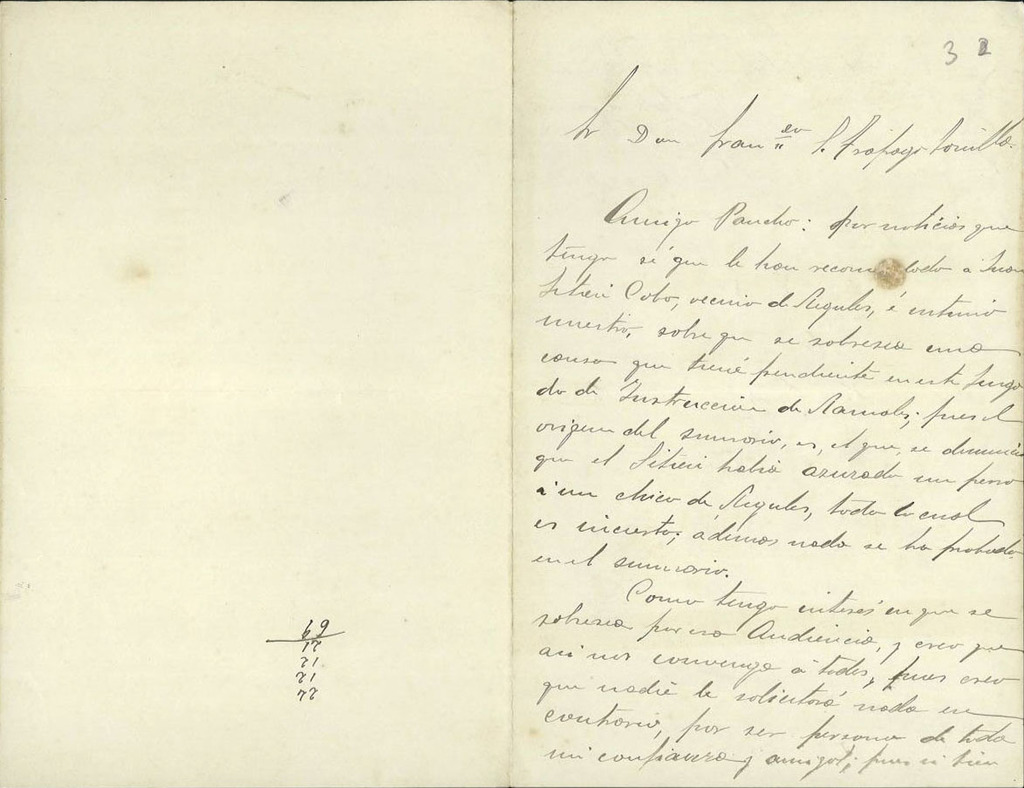 3 2
Sr Don Fran.co S. Trápaga
Amigo Pancho: por noticias que
tengo sé que le han recomendado a Juan
Sitien Cobo, vecino de Regules, é intimo
nuestro, sobre que se sobresea una
causa que tiene pendiente en este Juzga
do de Instruccion de Ramales; pues el
origen del sumario, es, el que, se denunció
que el Sitien habia azuzado un perro
a un chico de Regules, todo lo cual
es incierto; ádemas nada se ha probado
en el sumario.
Como tengo interés en que se
sobresea por esa Audiencia, y creo que
asi nos convenga á todos, pues creo
que nadie le solicitará nada en
contrario, por ser persona de toda
mi confianza y amigo; pues si bien
69
17
71
71
77